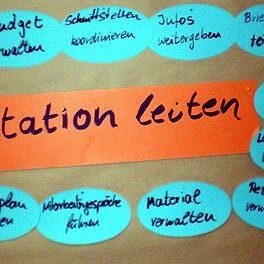 udget
walten
Schnittstellen
koordinieren
Infos
weitergeben
Brie
tation leiten
plan
en
Mitarbeitergespräche
führen
Material
verwalten
verw